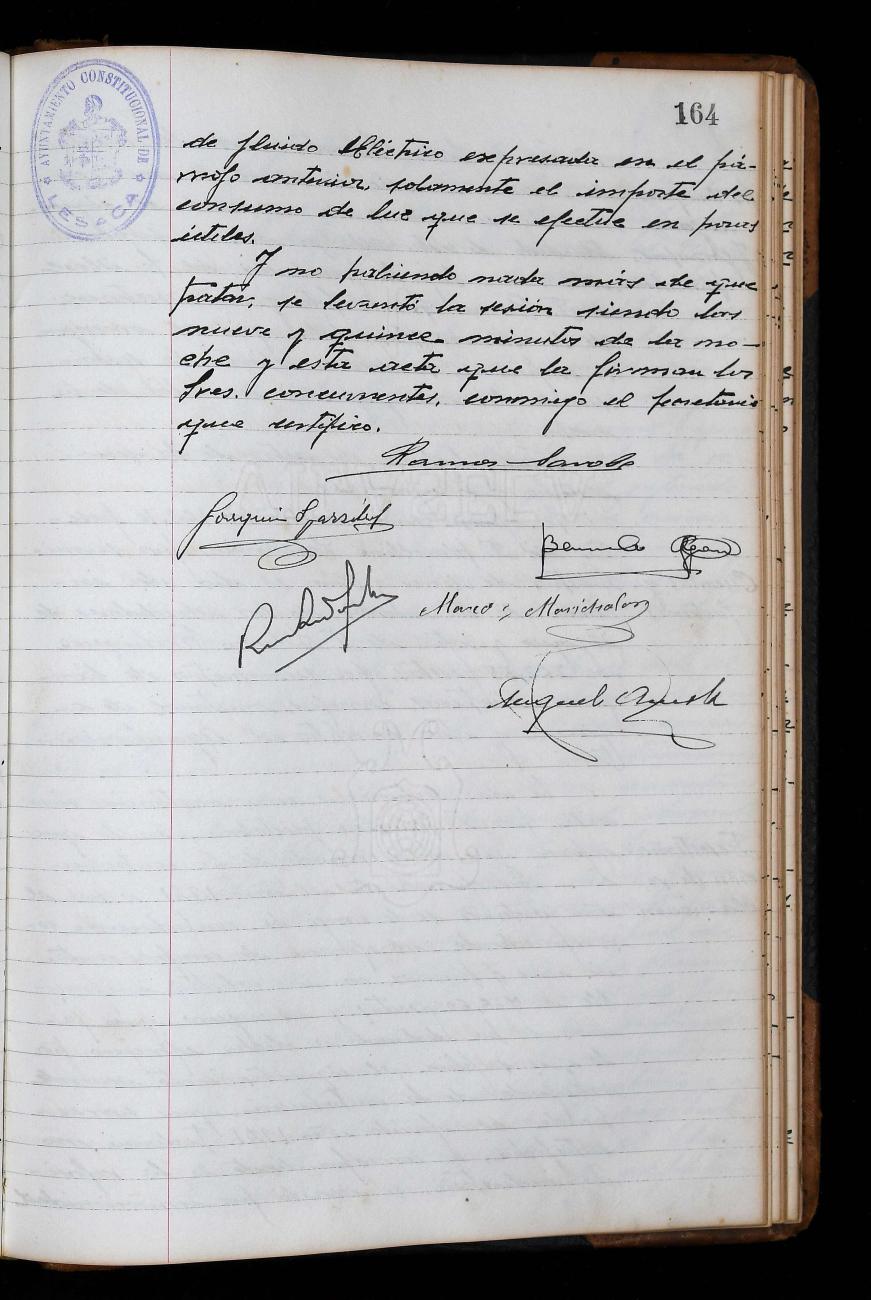 AYUNTAMIENTO CONSTITUCIONAL DE
LESACA
164
de fluido Eléctrico expresada en el pá-
rrafo anterior, solamente el importe del
consumo de luz que se efectúe en
útiles.
Y no habiendo nada más de que
tratar, se levantó la sesión siendo las
nueve y quince minutos de la no-
che y esta acta que la firman los
Sres. concurrentes, conmigo el secretario
que certifico.
Ramon
Joaquin
Bernardo
Marco y Marichalar
Miguel